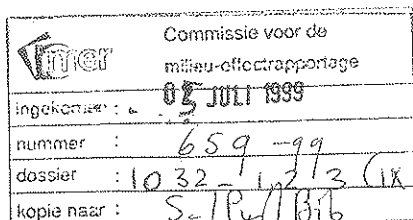 mer
Commissie voor de
milieu-effectrapportage
ingekomen : 05 JULI 1999
nummer : 659-99
dossier : 1032-1,2,3 (1x
kopie naar :